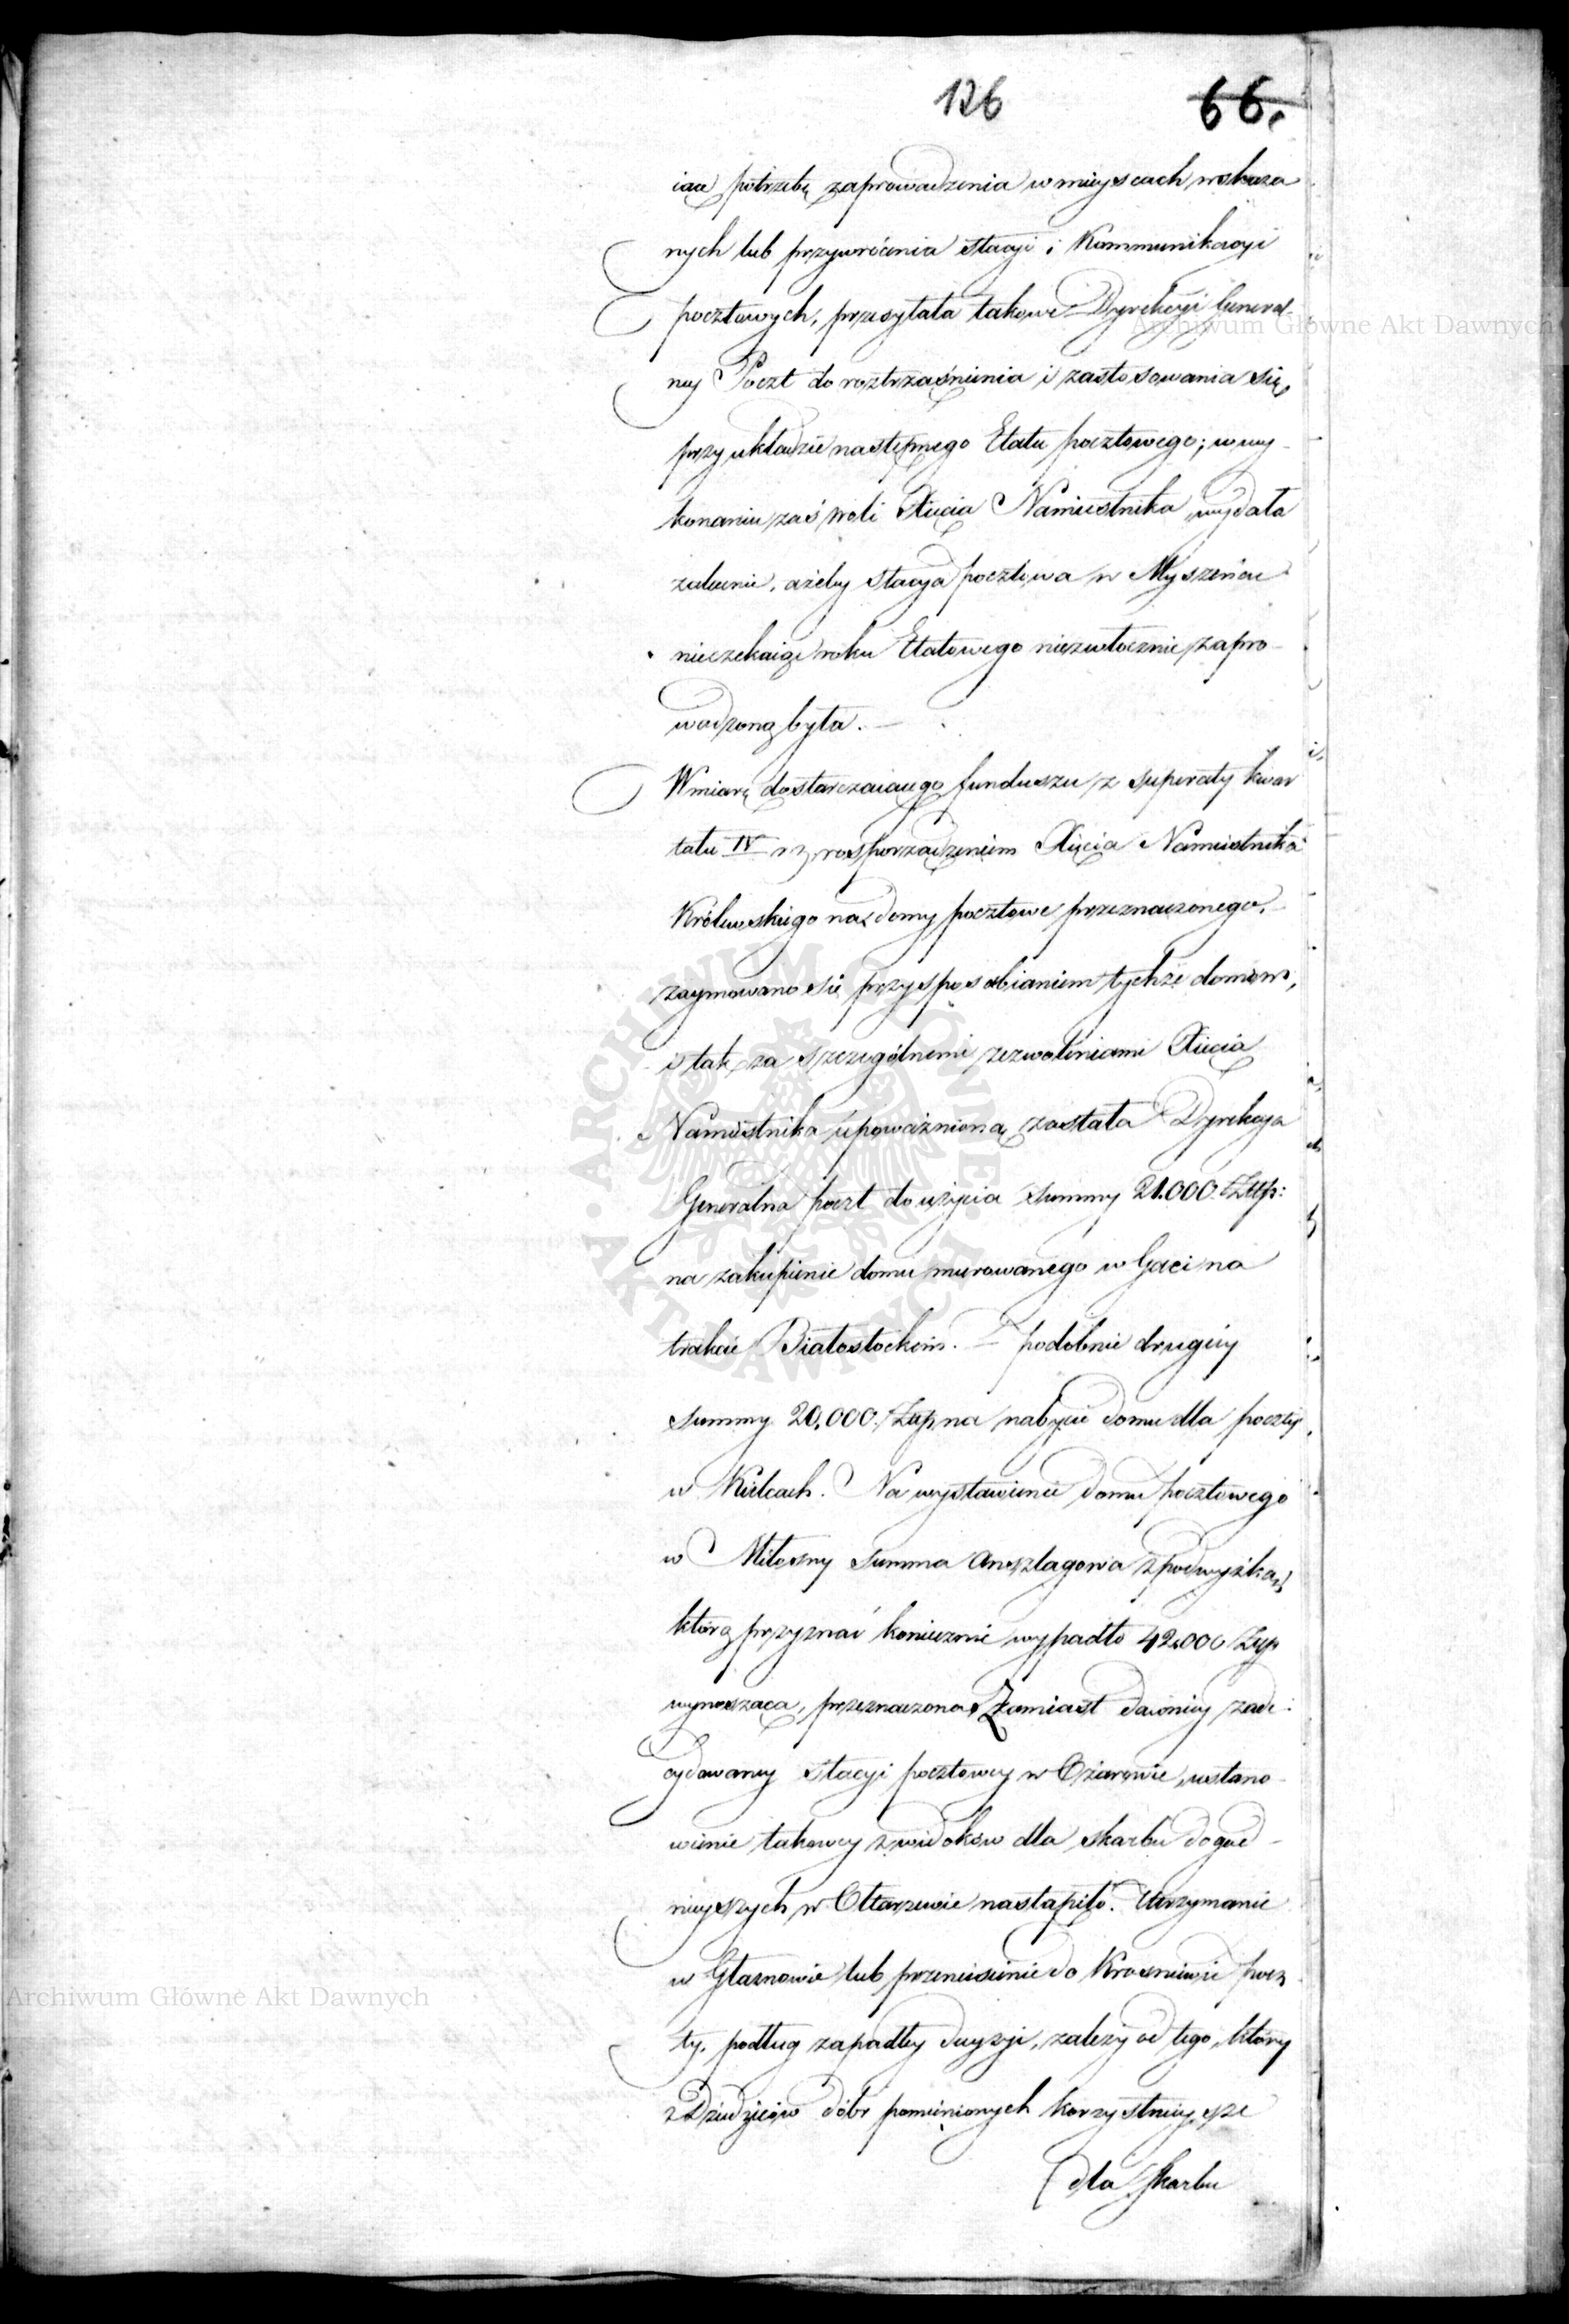 126 66.
iące potrzebę zaprowadzenia w mieyscach wskaza
nych lub przywrócenia stacyi i Kommunikacyi
pocztowych, przesyłała takowe Dyrekcyi General-
ney Poczt do roztrząśnienia i zastosowania się
przy układzie następnego Etatu pocztowego; w wy-
konaniu zaś woli Xięcia Namiestnika, wydała
zalecenie, ażeby stacya pocztowa w Myszeńcu
nieczekaiąc roku Etatowego niezwłocznie zapro-
wadzoną była. —
W miarę dostarczaiącego funduszu z superaty kwar
tału IV rozporządzeniem Xięcia Namiestnika
Królewskiego na domy pocztowe przeznaczonego,
zaymowano się przysposabianiem tychże domów,
i tak za szczególnemi zezwoleniami Xięcia
Namiestnika upoważnioną została Dyrekcya
Generalna poczt do użycia summy 21.000 Złłp:
na zakupienie domu murowanego w Gaci na
trakcie Białostockim. — podobnie drugiey
summy 20,000. Złłp na nabycie domu dla poczty
w Kielcach. Na wystawienie domu pocztowego
w Miłosny summa anszlagowa z podwyżką,
którą przyznać koniecznie wypadło 42.000 Złłp
wynosząca, przeznaczona. Zamiast dawniey zade-
cydowaney stacyi pocztowey w Ożarowie, ustano-
wienie takowey z widoków dla skarbu dogod-
nieyszych w Ołtarzewie nastąpiło. Utrzymanie
w Głaznowie lub przeniesienie do Krośniewic pocz
ty, podług zapadłey decyzyi, zależy od tego, który
z Dziedziców dóbr pomienionych korzystnieysze
dla skarbu
Archiwum Główne Akt Dawnych
Archiwum Główne Akt Dawnych
ARCHIWUM GŁÓWNE AKT DAWNYCH